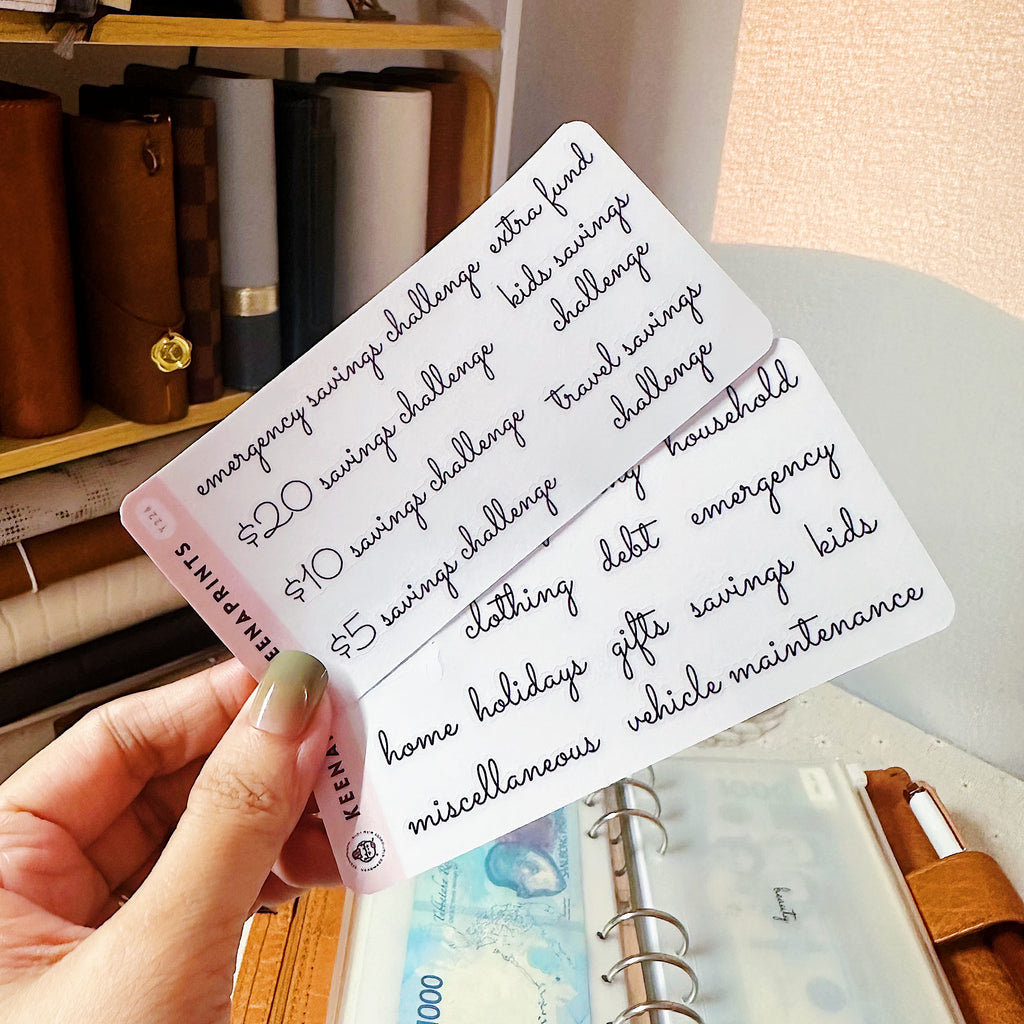 emergency savings challenge
extra fund
$20 savings challenge
kids savings
challenge
$10 savings challenge
travel savings
challenge
$5 savings challenge
T226
KEENAPRINTS
household
clothing
debt
emergency
home
holidays
gifts
savings
kids
miscellaneous
vehicle maintenance
beauty
1000